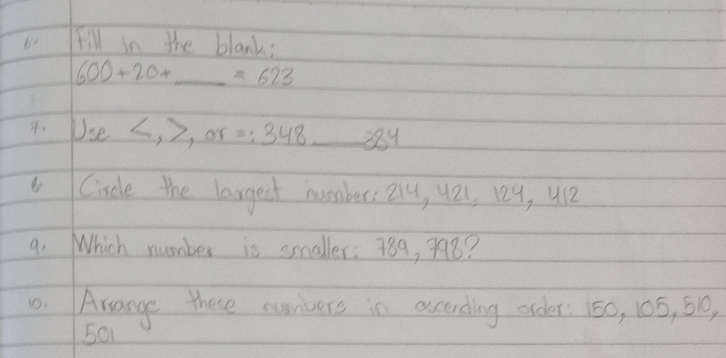 6. Fill in the blank:
600+20+____ = 623
7. Use <, >, or =: 348____384
8. Circle the largest number: 214, 421, 124, 412
9. Which number is smaller: 789, 798?
10. Arrange these numbers in ascending order: 150, 105, 510,
501